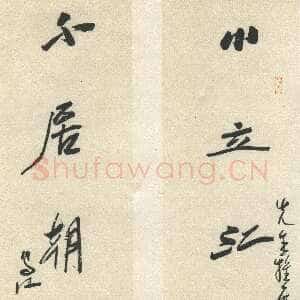 小立江
先生雅
不居朝
Shufawang.CN